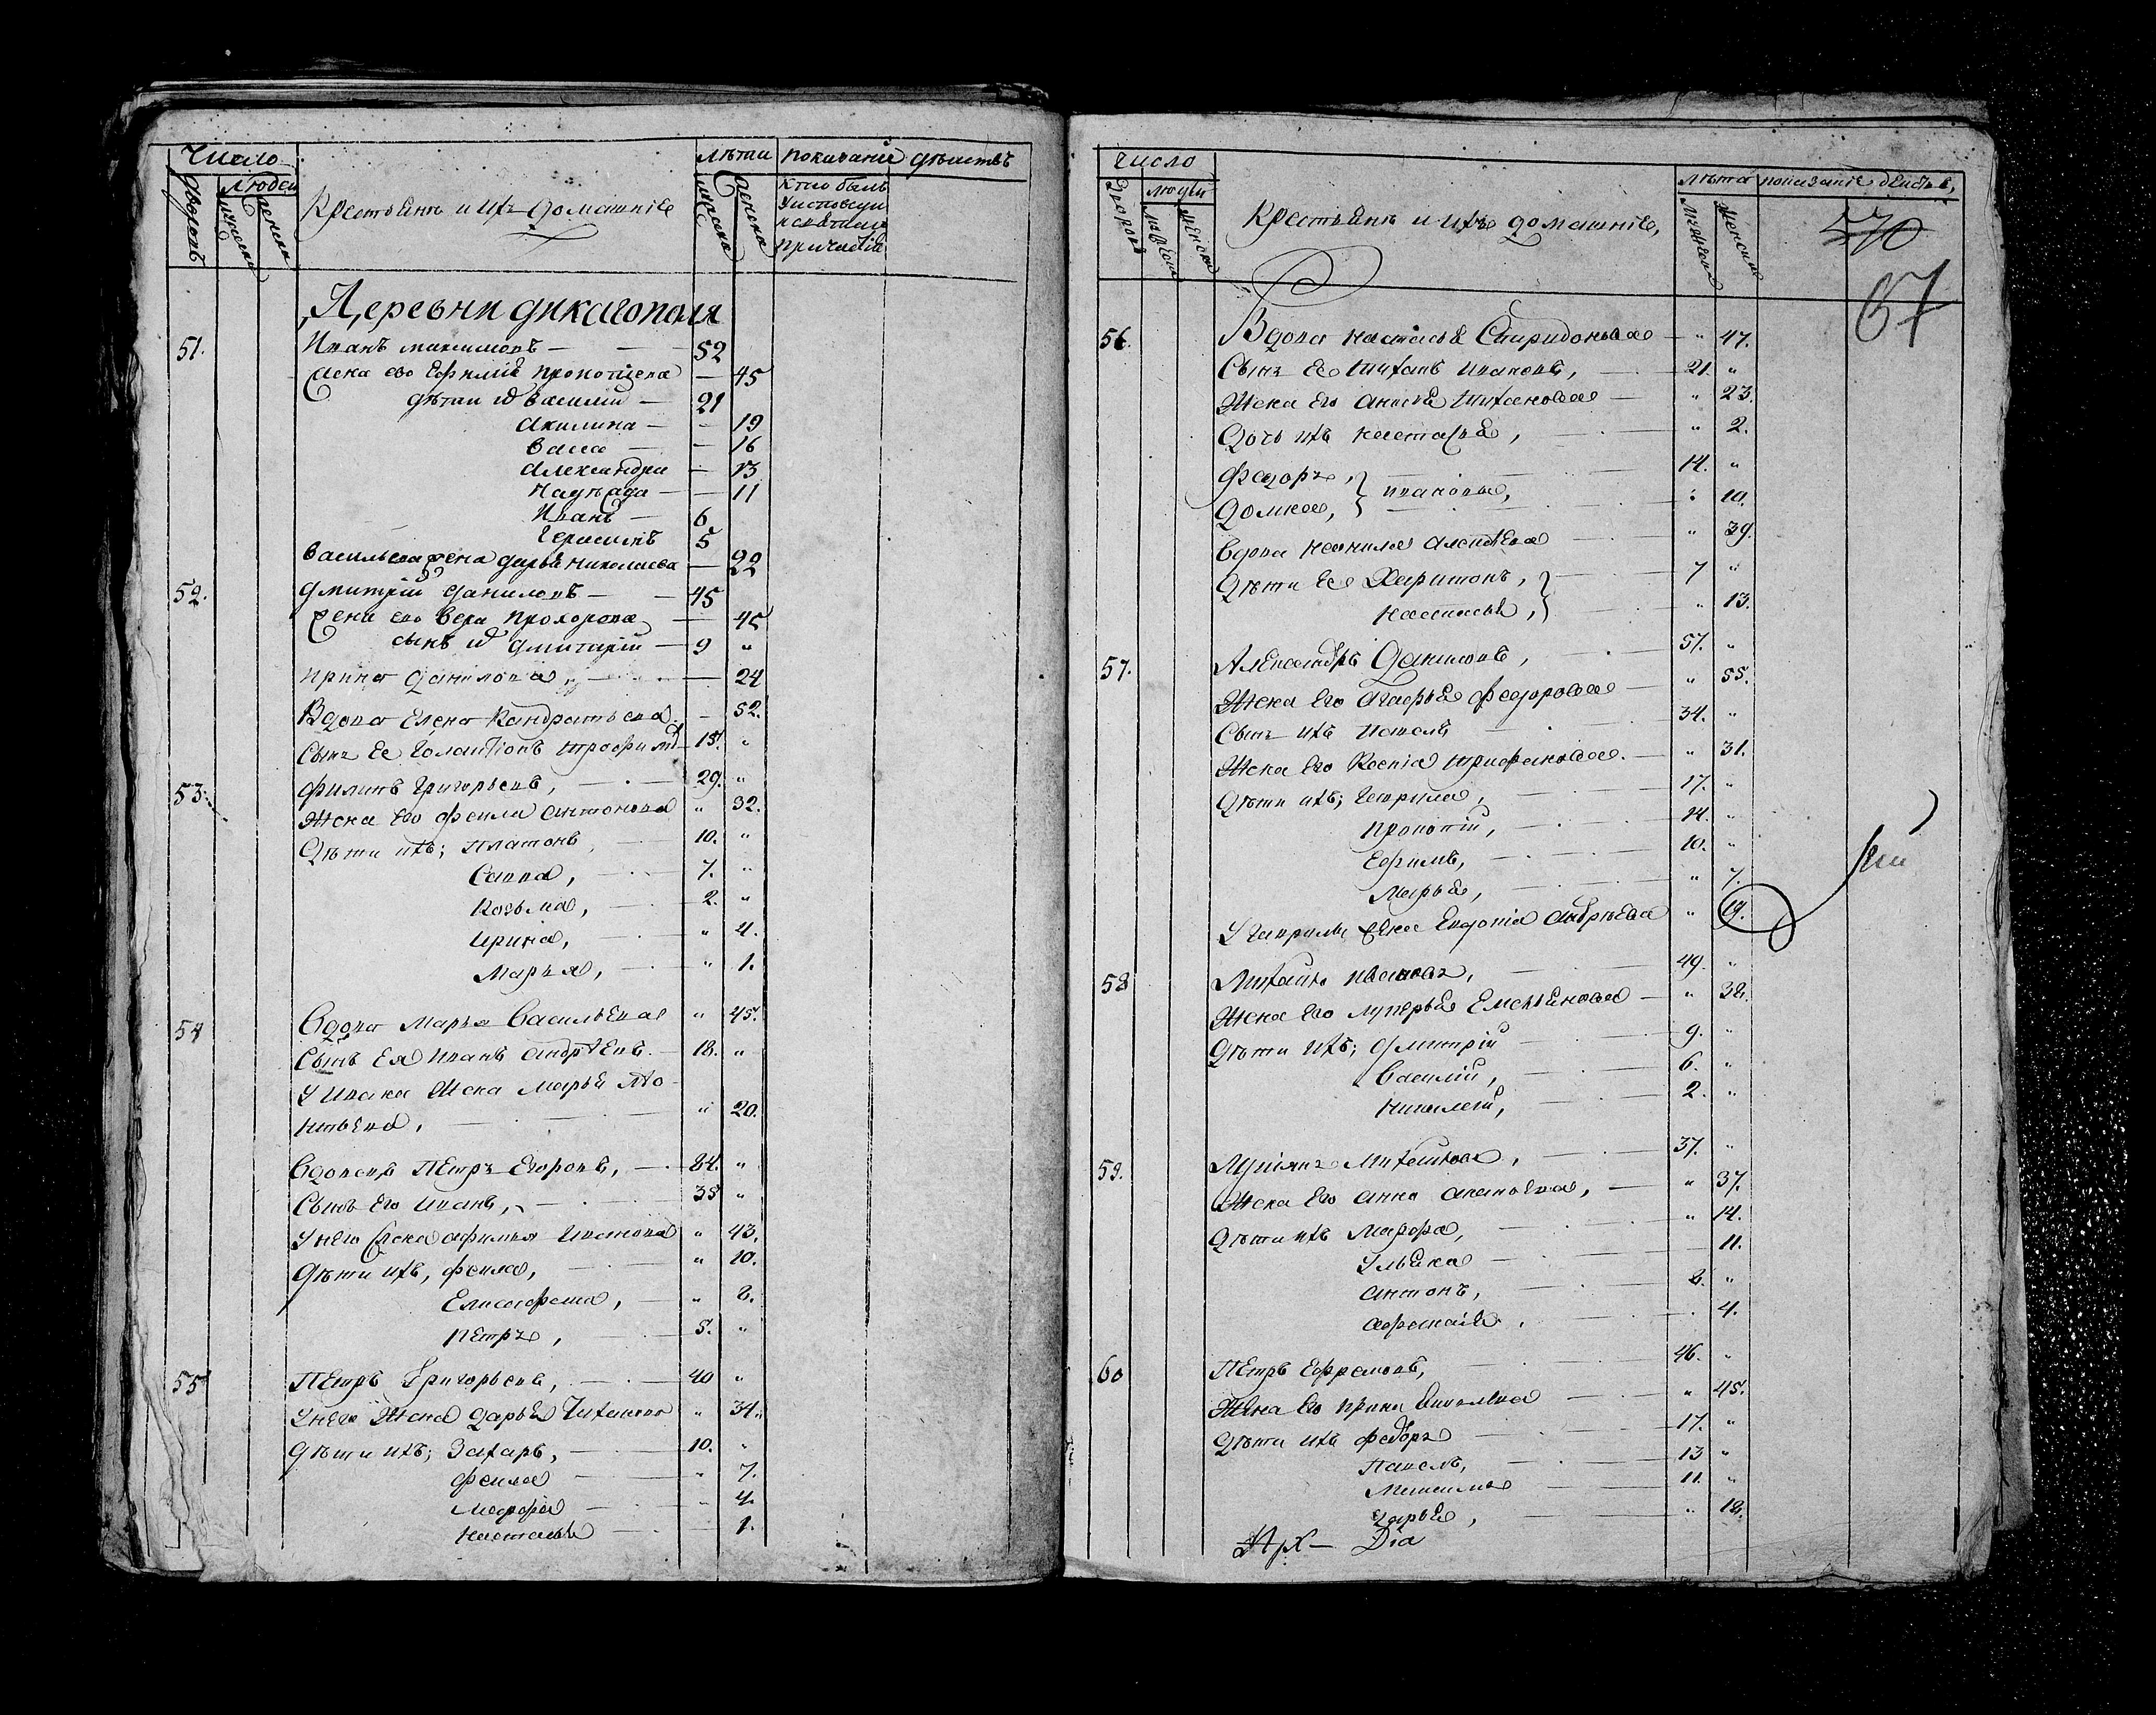 Число
Лѣта показаніе дѣиствъ
дворовъ
людеи
Крестьянъ и ихъ домашніе
мужска
женска
кто былъ
у исповѣди
и святаго
причастія
Деревни дикагополя
51. Иванъ максимовъ 52
жена его Ефимія прокопиева 45
дѣти их василии 21
акилина 19
васса 16
александра 13
Надѣжда 11
Иванъ 6
Герасимъ 5
васильева жена дарья николаева 22
52. дмитріи даниловъ 45
жена его вера прохорова 45
сынъ их дмитріи 9 "
ирина данилова 24
Вдова Елена Кандратьева 52.
Сынъ Ее Галактионъ трофимо 15. "
53. филипъ Григорьевъ, 29. "
Жена его фекла антонова " 32.
Дѣти ихъ; платонъ 10. "
Савва, 7. "
Козьма, 2. "
ирина, " 4.
Марья, " 1.
54 Вдова Марья Васильева " 45.
Сынъ Ея иванъ андрѣевъ. 18. "
У ивана Жена марья
" 20.
вдовецъ Петръ Егоровъ, 84. "
Сынъ Его иванъ, 35 "
У него жена афимья " 43.
Дѣти ихъ, фекла, " 10.
Елисафета, " 8.
петръ, 5. "
55 Петръ Григорьевъ, 40 "
У него Жена дарья " 34.
Дѣти ихъ; Захаръ, 10. "
фекла " 7.
марфа " 4.
настасья 1.
число
дворовъ
людеи
Крестьянъ и ихъ домашніе,
лѣта показаніе деиств,
570
67
56. Вдова настасья Спиридонова " 47.
Сынъ Ее тихонъ ивановъ, 21. "
Жена Его анисья " 23.
Дочь ихъ настасья, " 2.
Федоръ, 14. "
ивановы,
домна, 10.
вдова неонила алексѣева " 39.
Дѣти Ее Харитонъ, 7 "
настасья, " 13.
57. Александръ Даниловъ, 57. "
Жена Его агафья федорова " 55.
Сынъ ихъ 34. "
Жена Его Ксенія трифанова. " 31.
Дѣти ихъ; гаврила, 17. "
прокопіи, 14. "
Ефимъ, 10. "
Марья, " 7.
У гаврилы жена Евдокія андрѣева " 19.
58 Михаило ивановъ, 49. "
Жена Его лукерья Емельянова " 38.
Дѣти ихъ; дмитріи 9. "
василіи, 6. "
николаи, 2. "
59. Михаиловъ, 37. "
Жена Его анна " 37.
Дѣти ихъ Марфа, " 14.
Ульяна 11.
антонъ, 8. "
4.
60 Петръ Ефремовъ, 46. "
Жена Его ирина " 45.
Дѣти ихъ федоръ 17. "
Павелъ, 13 "
11. "
дарья, " 18.